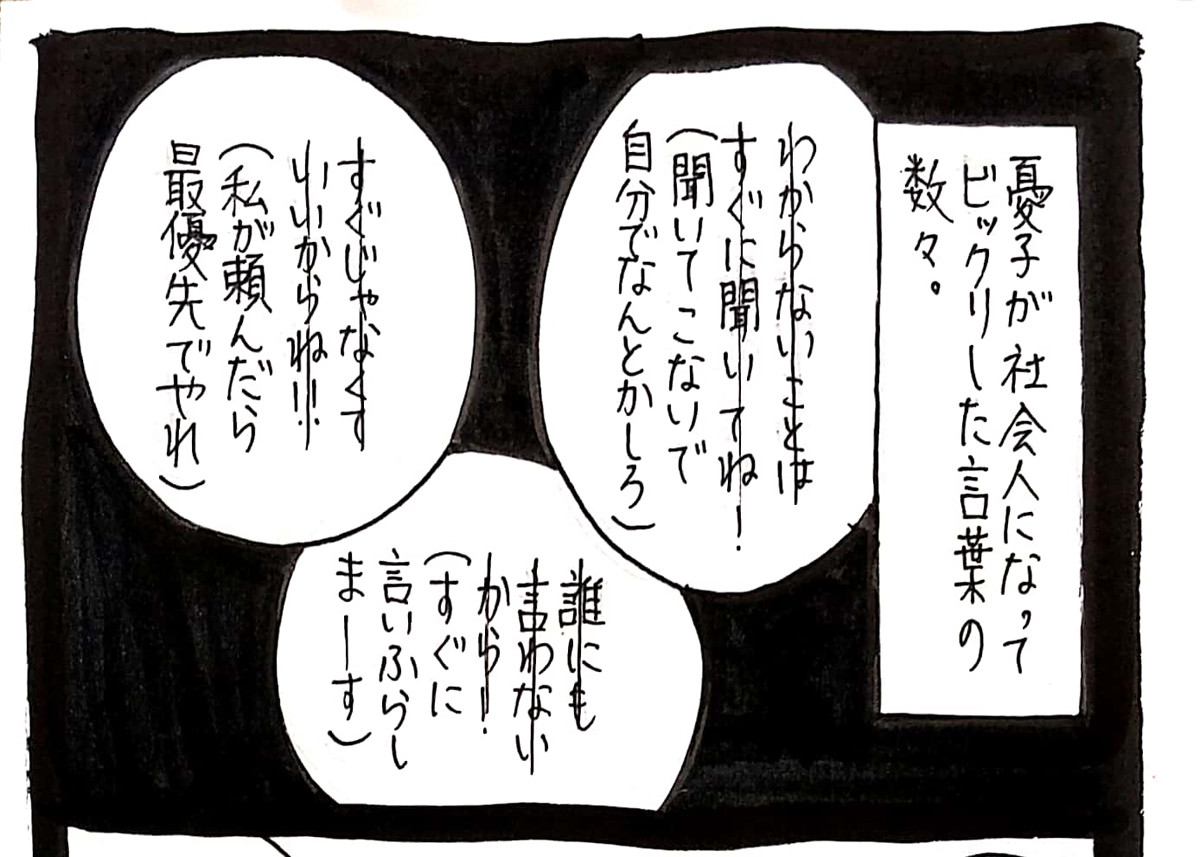 憂子が社会人になって
ビックリした言葉の
数々。
わからないことは
すぐに聞いてね!
(聞いてこないで
自分でなんとかしろ)
すぐじゃなくて
いいからね!!
(私が頼んだら
最優先でやれ)
誰にも
言わない
から!
(すぐに
言いふらし
まーす)